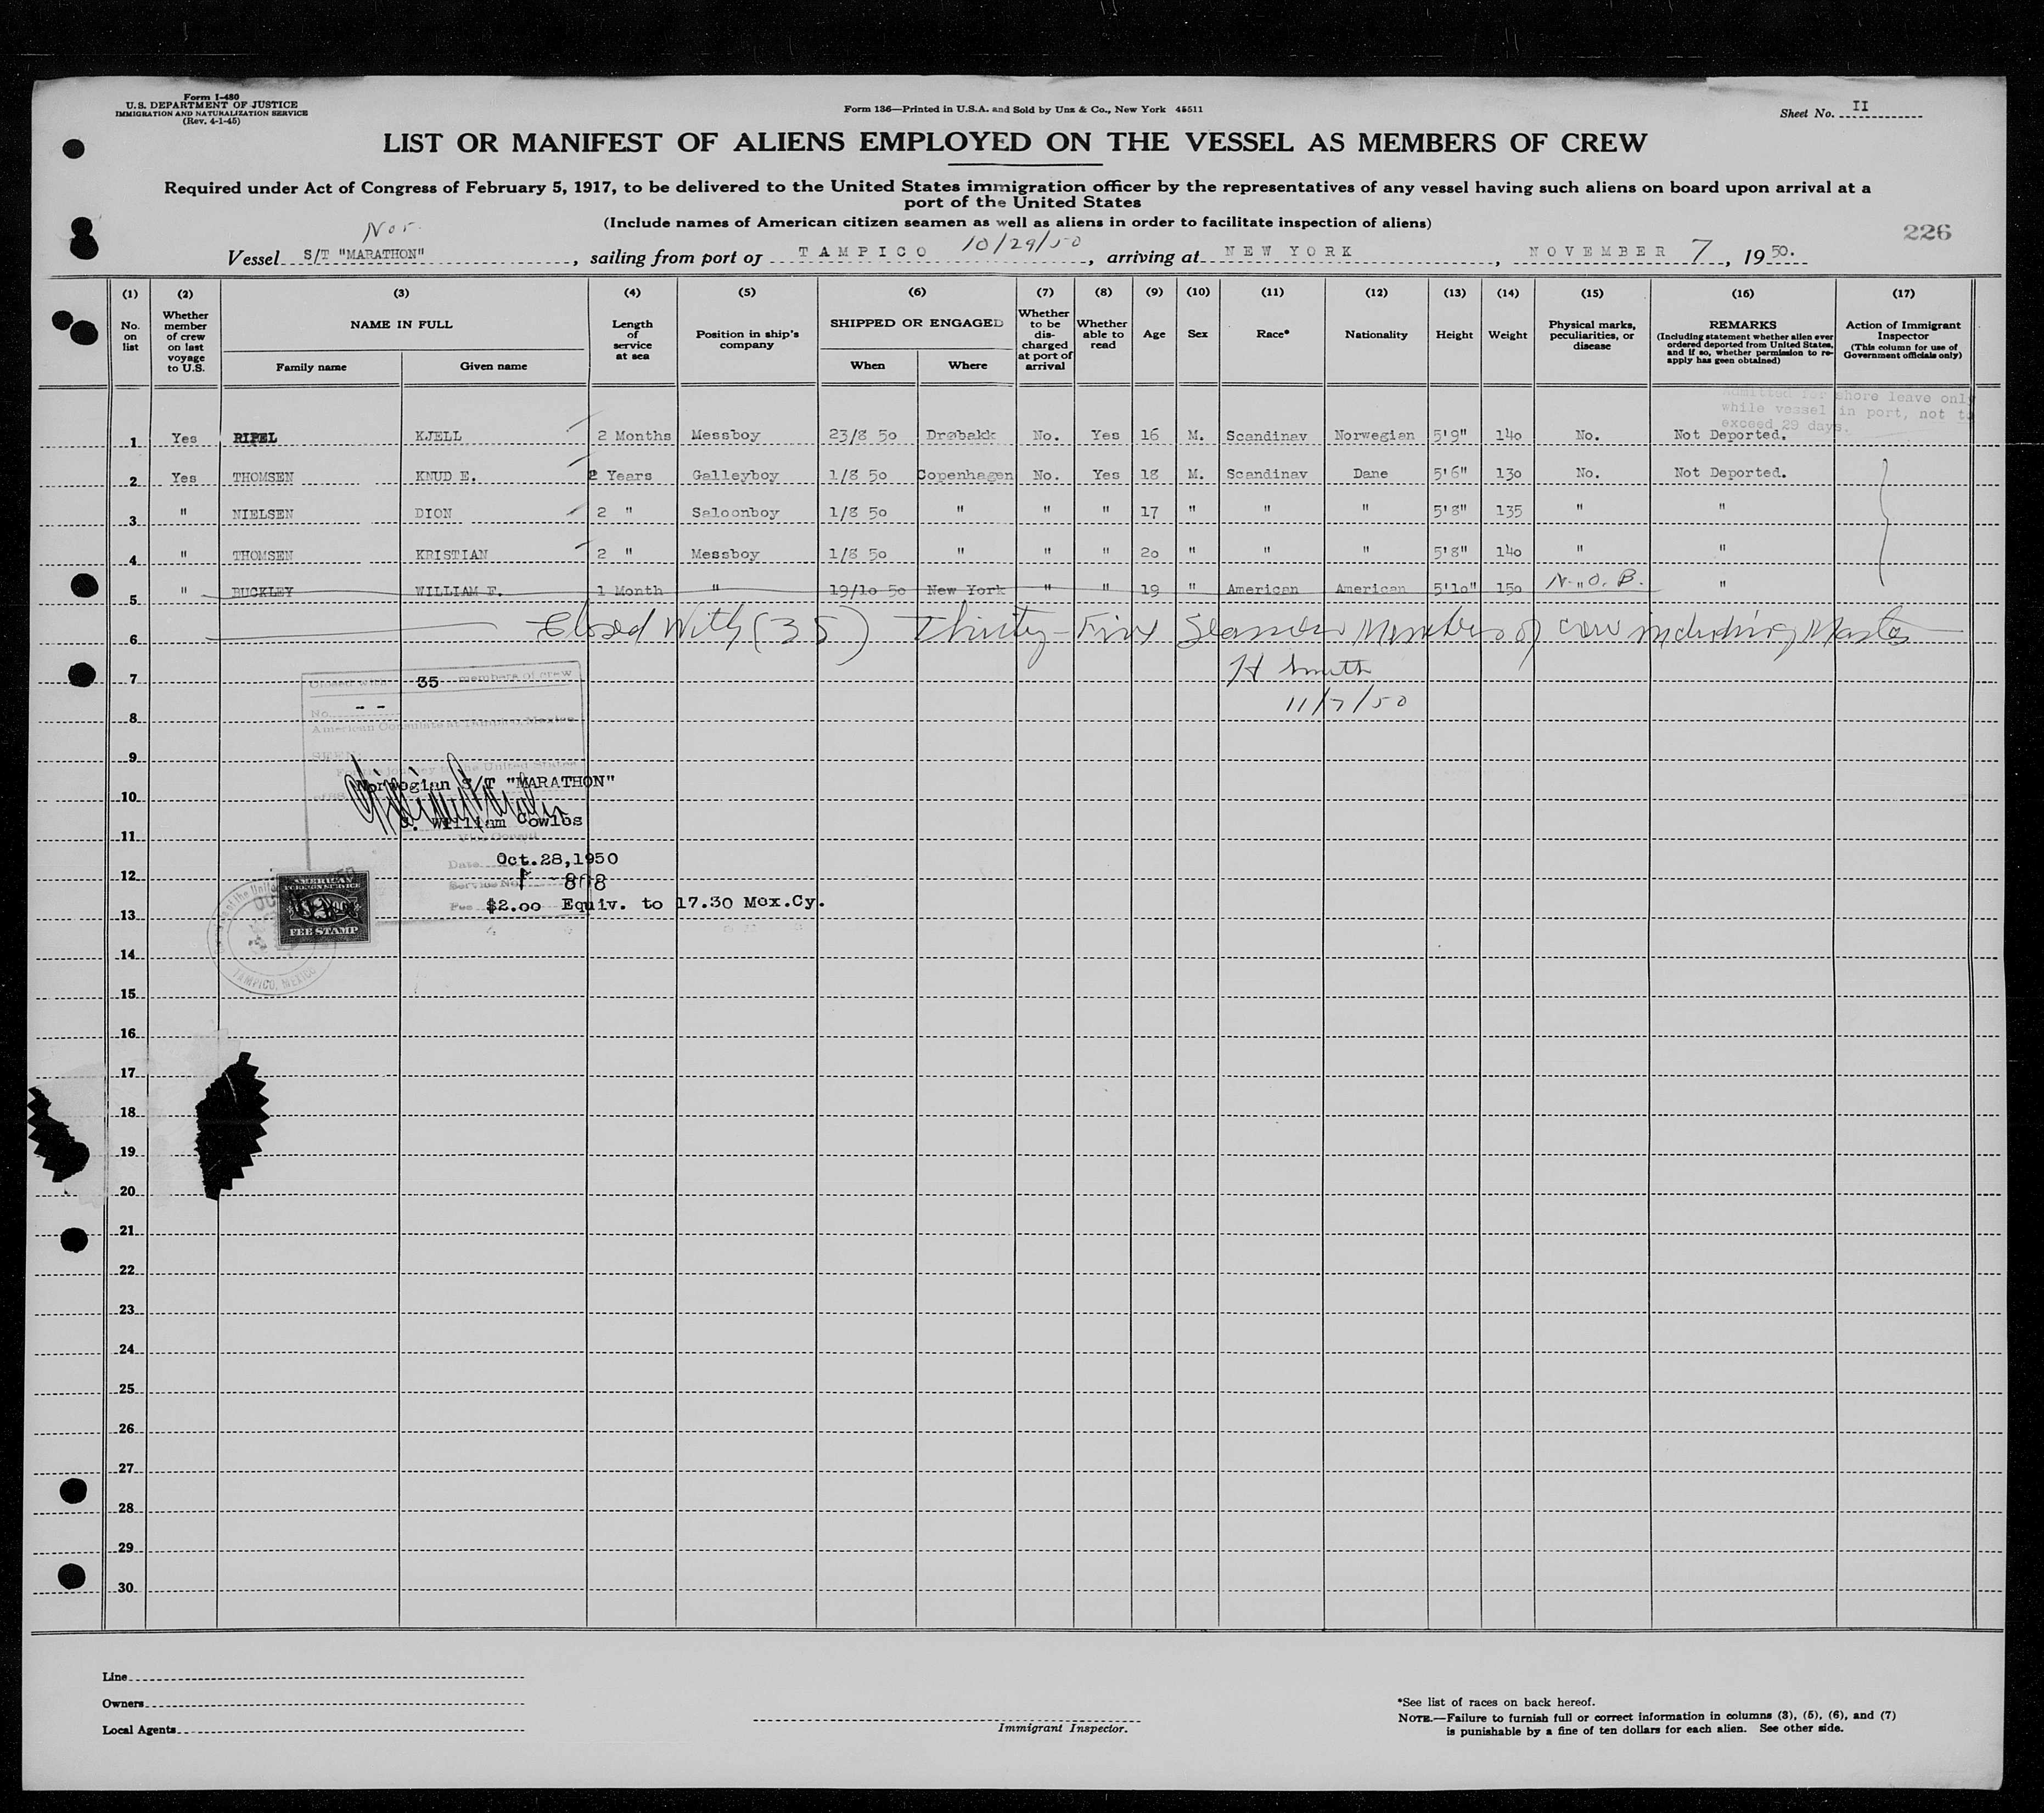 Form I-480
U.S. DEPARTMENT OF JUSTICE
IMMIGRATION AND NATURALIZATION SERVICE
(Rev. 4-1-45)
Form 136—Printed in U.S.A. and Sold by Unz & Co., New York 45511
Sheet No. II
LIST OR MANIFEST OF ALIENS EMPLOYED ON THE VESSEL AS MEMBERS OF CREW
Required under Act of Congress of February 5, 1917, to be delivered to the United States immigration officer by the representatives of any vessel having such aliens on board upon arrival at a
port of the United States
(Include names of American citizen seamen as well as aliens in order to facilitate inspection of aliens)
226
Nor.
Vessel S/T "MARATHON", sailing from port of TAMPICO 10/29/50, arriving at NEW YORK, NOVEMBER 7, 1950.
(1) (2) (3) (4) (5) (6) (7) (8) (9) (10) (11) (12) (13) (14) (15) (16) (17)
No. on list
Whether member of crew on last voyage to U.S.
NAME IN FULL
Family name Given name
Length of service at sea
Position in ship's company
SHIPPED OR ENGAGED
When Where
Whether to be discharged at port of arrival
Whether able to read
Age
Sex
Race*
Nationality
Height
Weight
Physical marks, peculiarities, or disease
REMARKS
(Including statement whether alien ever ordered deported from United States, and if so, whether permission to re-apply has geen obtained)
Action of Immigrant Inspector
(This column for use of Government officials only)
Admitted for shore leave only
while vessel in port, not to
exceed 29 days.
1 Yes RIPEL KJELL 2 Months Messboy 23/8 50 Drøbakk No. Yes 16 M. Scandinav Norwegian 5'9" 140 No. Not Deported.
2 Yes THOMSEN KNUD E. 2 Years Galleyboy 1/8 50 Copenhagen No. Yes 18 M. Scandinav Dane 5'6" 130 No. Not Deported.
3 " NIELSEN DION 2 " Saloonboy 1/8 50 " " " 17 " " " 5'8" 135 " "
4 " THOMSEN KRISTIAN 2 " Messboy 1/8 50 " " " 20 " " " 5'8" 140 " "
5 " BUCKLEY WILLIAM F. 1 Month " 19/10 50 New York " " 19 " American American 5'10" 150 N.O.B. "
6 Closed With (35) Thirty-Five Seamen Members of crew including Master
7 H Smith
8 11/7/50
Closed with 35 members of crew
No. --
American Consulate at Tampico, Mexico
SEEN:
For the journey to the United States
9
Norwegian S/T "MARATHON"
10
William Cowles
11
Vice Consul
Date Oct.28,1950
12
Service No. 808
Fee $2.00 Equiv. to 17.30 Mex.Cy.
13
AMERICAN
FOREIGN SERVICE
FEE STAMP
TAMPICO, MEXICO
14
15
16
17
18
19
20
21
22
23
24
25
26
27
28
29
30
Line
Owners
Local Agents
Immigrant Inspector.
*See list of races on back hereof.
NOTE.—Failure to furnish full or correct information in columns (3), (5), (6), and (7)
is punishable by a fine of ten dollars for each alien. See other side.